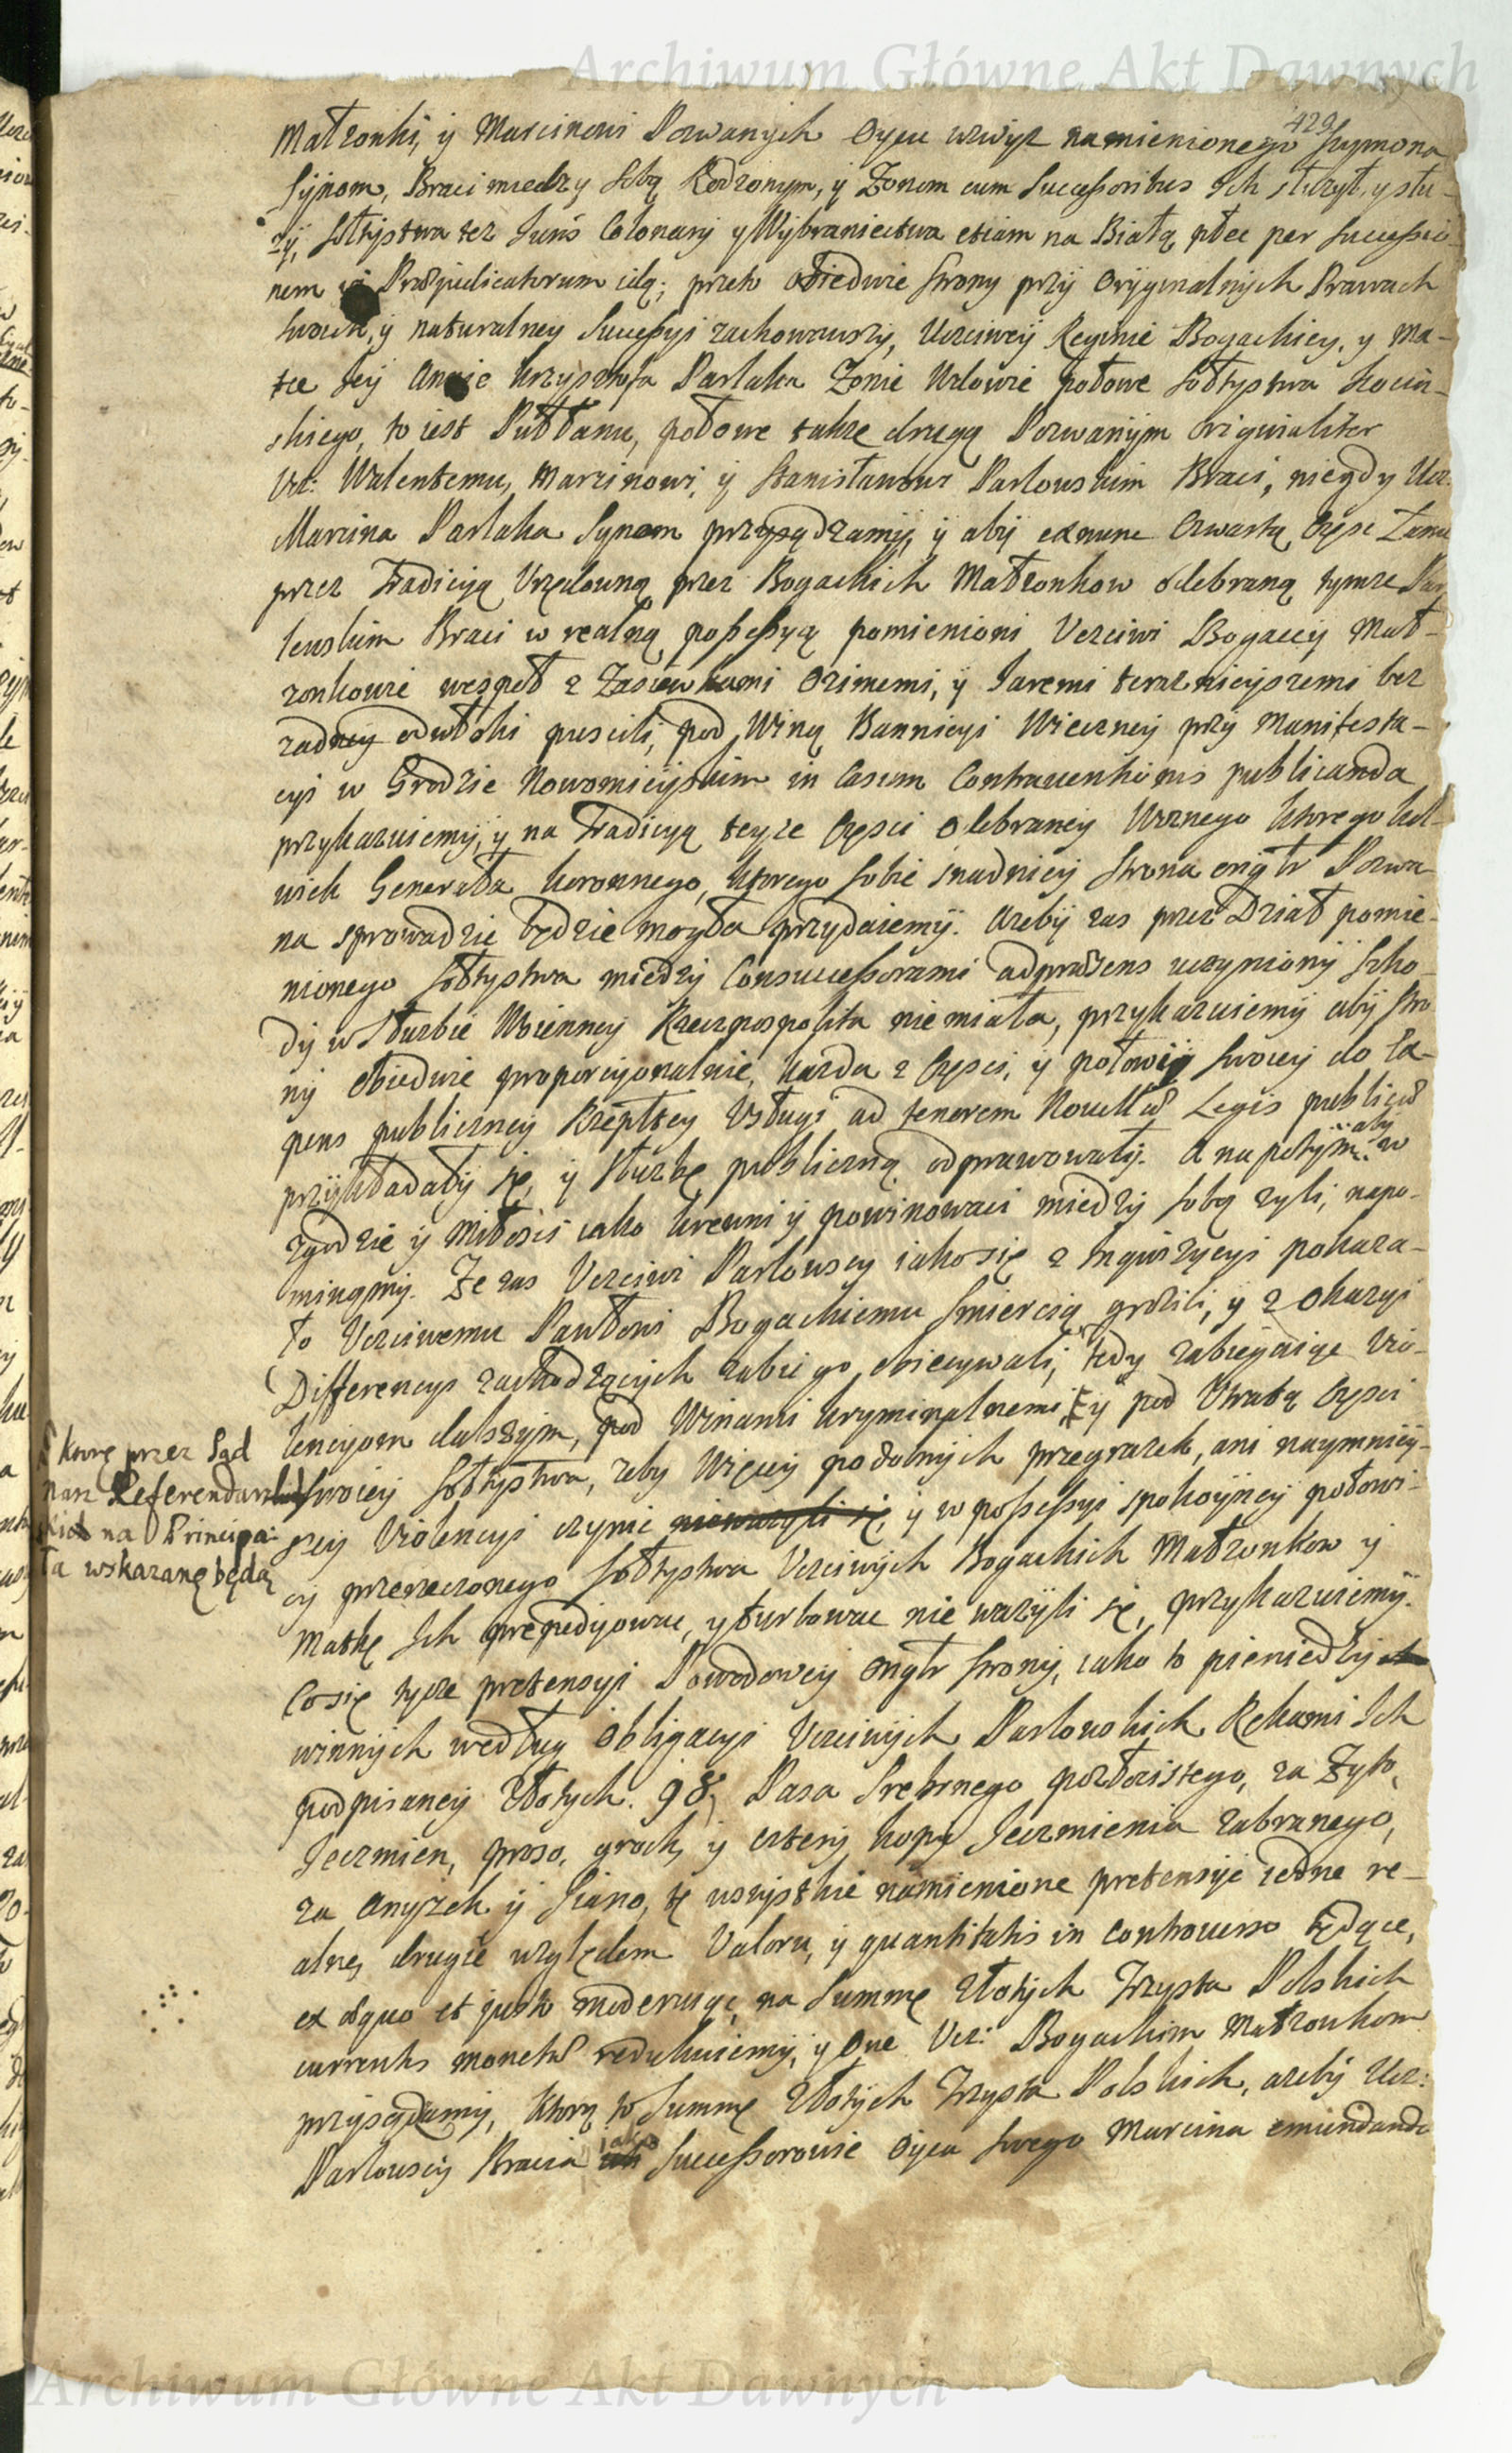 Archiwum Główne Akt Dawnych
429
Małzonki, ÿ Marcinowi Pozwanych Oycu wzwyż namienionego Szymona
Sÿnom, Braci miedzy Sobą Rodzonym, ÿ Zonom cum Successoribus Ich słuzył, y słu-
zÿ, Sołtystwa tez Juris Colonarÿ y Wÿbraniectwa etiam na Białą płec per Successio-
nem Præjudicatorum idą; przeto obiedwie Strony przÿ Orÿginalnÿch Prawach
Swoich, ÿ naturalney Successÿi zachowawszy, Uczciwey Reginie Bogackiey, y Ma-
tce Jeÿ Annie Krzysztofa Parlaka Zonie Uzlowie połowę Sołtystwa
skiego, to iest Puł Łanu, połowę takze drugą Pozwanÿm originaliter
Ucz: Walentemu, Marcinowi, ÿ Stanisławowi Parlowskim Braci, niegdy Ucz:
Marcina Parlaka Synom przysądzamÿ, ÿ abÿ exnunc Czwartą Częsc Łanu
przez Tradicyą Urzędowną przez Bogackich Małzonkow odebraną tymze Par-
lowskim Braci w realną possessyą pomienioni Uczciwi Bogaccÿ Mał-
zonkowie wespoł z Zasiewkami Ozimemi, ÿ Jaremi teraznieyszemi bez
zadney odwłoki puscili, pod Winą Bannicyi Wieczney przy Manifesta-
cyi w Grodzie Nowomieÿskim in Casum Contrauentionis publicanda
przykazuiemÿ, ÿ na Tradicyą teyze Częsci Odebraney Woznego ktoregokol-
wiek Generała Koronnego, ktorego Sobie snadniey Strona ongtr Pozwa-
na sprowadzic będzie mogła przydaiemÿ. Azebÿ zas przez Dział pomie-
nionego Sołtystwa miedzÿ Consuccessorami adpræsens uczynionÿ Szko-
dÿ w Słuzbie Woienneÿ Rzeczpospolita niemiała, przykazuiemÿ abÿ Stro-
nÿ obiedwie proporcÿonalnie, kazda z Częsci, ÿ połowÿ Swoiey do Ex-
pens publiczneÿ Rzepltey Usługi ad tenorem Nouellæ Legis publicæ
przÿkładałÿ się, ÿ Słuzbę publiczną odprawowałÿ. A napotÿm aby w
zgodzie ÿ Miłosci iako krewni ÿ powinowaci miedzÿ Sobą zyli, napo-
minąmÿ. Ze zas Uczciwi Parlowscy iako się z Inqwizycyi pokaza-
ło Uczciwemu Pawłowi Bogackiemu Smiercią grozili, ÿ z Okazyi
Differencyi zachodzącÿch zabic go obiecywali, tedy zabiegaiąc Vio-
lencÿom dalszÿm, pod Winami krÿminalnemi ÿ pod Utratą Częsci
ktorę przez Sąd
nasz Referendars-
kie na Principa-
ła wskazanę będą
Swoieÿ Sołtystwa, zeby Więcey podobnÿch przegrazek, ani naymniey-
szeÿ Violencyi czynic niewazyli się, ÿ w possessyi spokoÿney połowi-
cy przerzeczonego Sołtystwa Uczciwÿch Bogackich Małzonkow ÿ
Matkę Ich prepedÿowac, y turbowac nie wazÿli się, przykazuiemÿ.
Co się tycze pretensyi Powodoweÿ ongtr Stronÿ, iako to pieniedzÿ
winnÿch według Obligacyi Uczciwÿch Parlowskich Rękami Ich
podpisaneÿ Złotych. 98, Pasa Srebrnego pozłocistego, za Zyto,
Jeczmien, proso, groch, ÿ czterÿ kopy Jeczmienia zabranego,
za Anyzek ÿ Siano, te wszystkie namienione pretensÿe iedne re-
alne, drugie względem Valoru, ÿ quantitatis in controuerso będące,
ex æquo et justo moderuiąc, na Summę Złotÿch Trzysta Polskich
currentis monetæ redukuiemÿ, ÿ One Ucz: Bogackim Małzonkom
przysądzamÿ, Ktorą to Summę Złotÿch Trzysta Polskich, azebÿ Ucz:
Parlowscÿ Bracia iako Successorowie Oÿca Swego Marcina emundando
Archiwum Główne Akt Dawnych